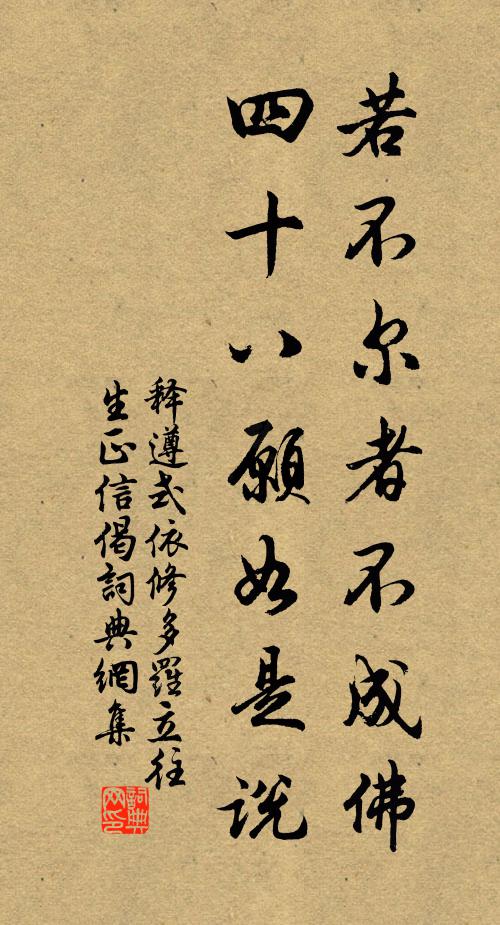 若不尔者不成佛
四十八願如是説
释遵式依修多羅立往
生正信偈詞典網集
詞典网印